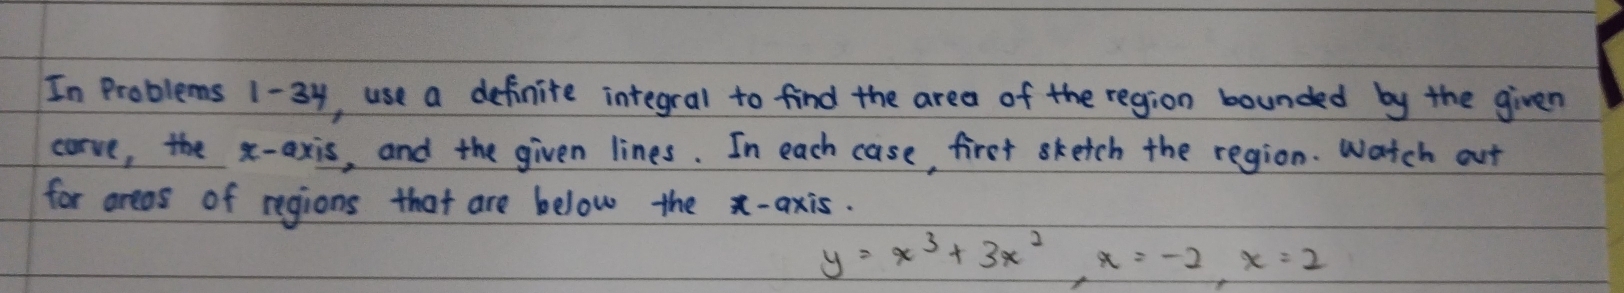 In Problems 1-34, use a definite integral to find the area of the region bounded by the given
curve, the x-axis, and the given lines. In each case, first sketch the region. Watch out
for areas of regions that are below the x-axis.
y = x³ + 3x², x = -2, x = 2